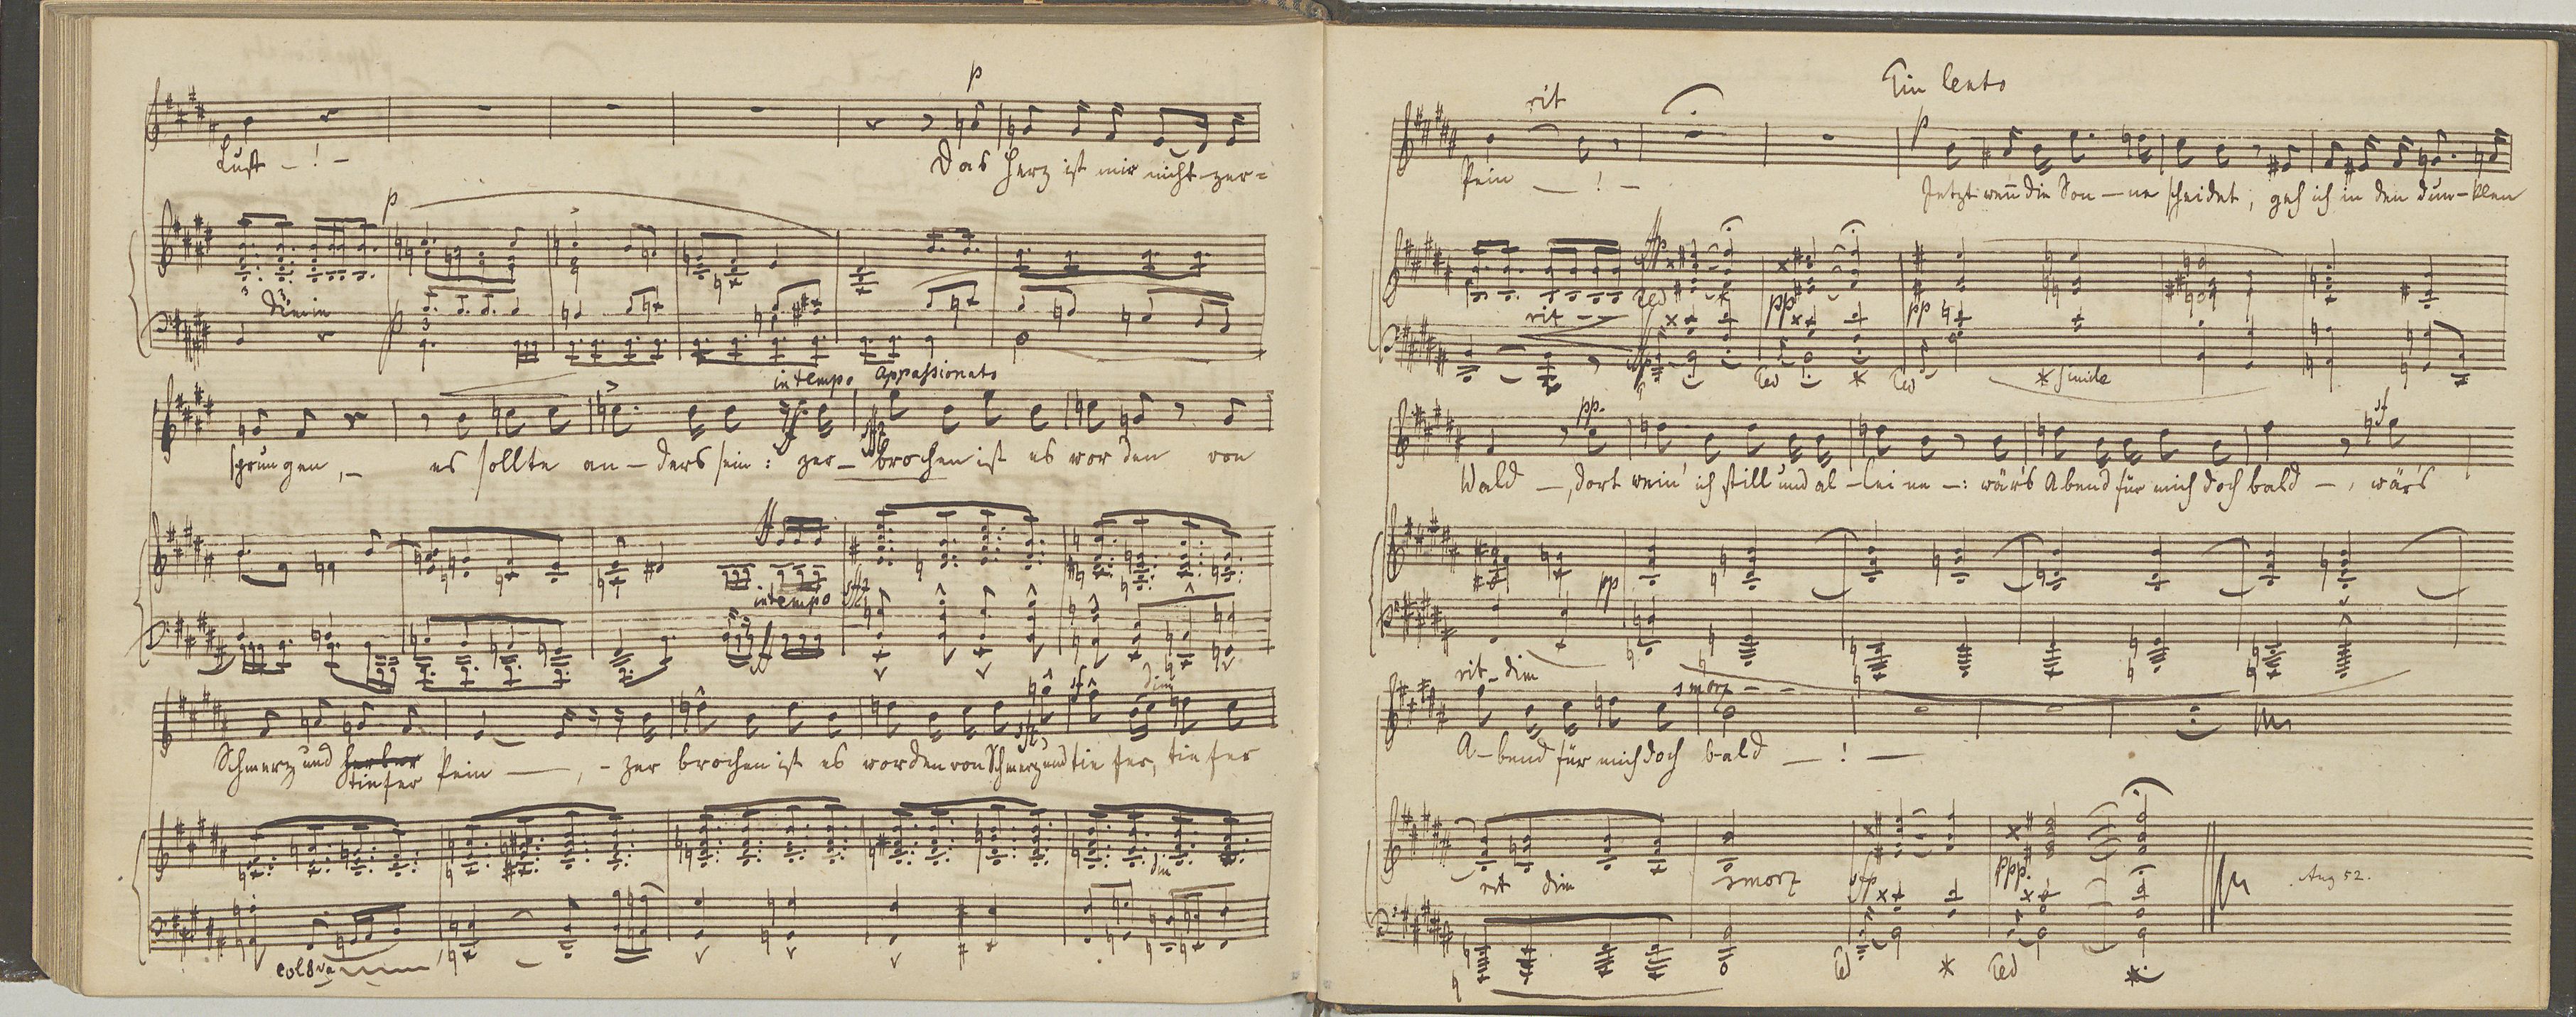 p
Lust - ! -
Das Herz ist mir nicht zer=
p
3 3
p
3
in tempo appassionato
sprungen, - es sollte an - ders sein: zer - brochen ist es worden von
ff sffz
ff
in tempo sffz
ff
dim
sf
Schmerz und herber Pein - , - zer brochen ist es worden von Schmerz und tie fer, tie fer
tiefer
dim
col 8va
Ein lento
rit
p
Pein - ! -
Jetzt wenn die Son - ne scheidet, geh ich in den dun - klen
sfp
Ped pp pp
rit - -
Ped * Ped * simile
pp.
sf
Wald - , dort wein' ich still und al - lei ne - : wär's Abend für mich doch bald - , wär's
pp
rit - dim
smorz - -
A - bend für mich doch bald - ! -
rit dim smorz sfp ppp.
Aug 52.
Ped * Ped *